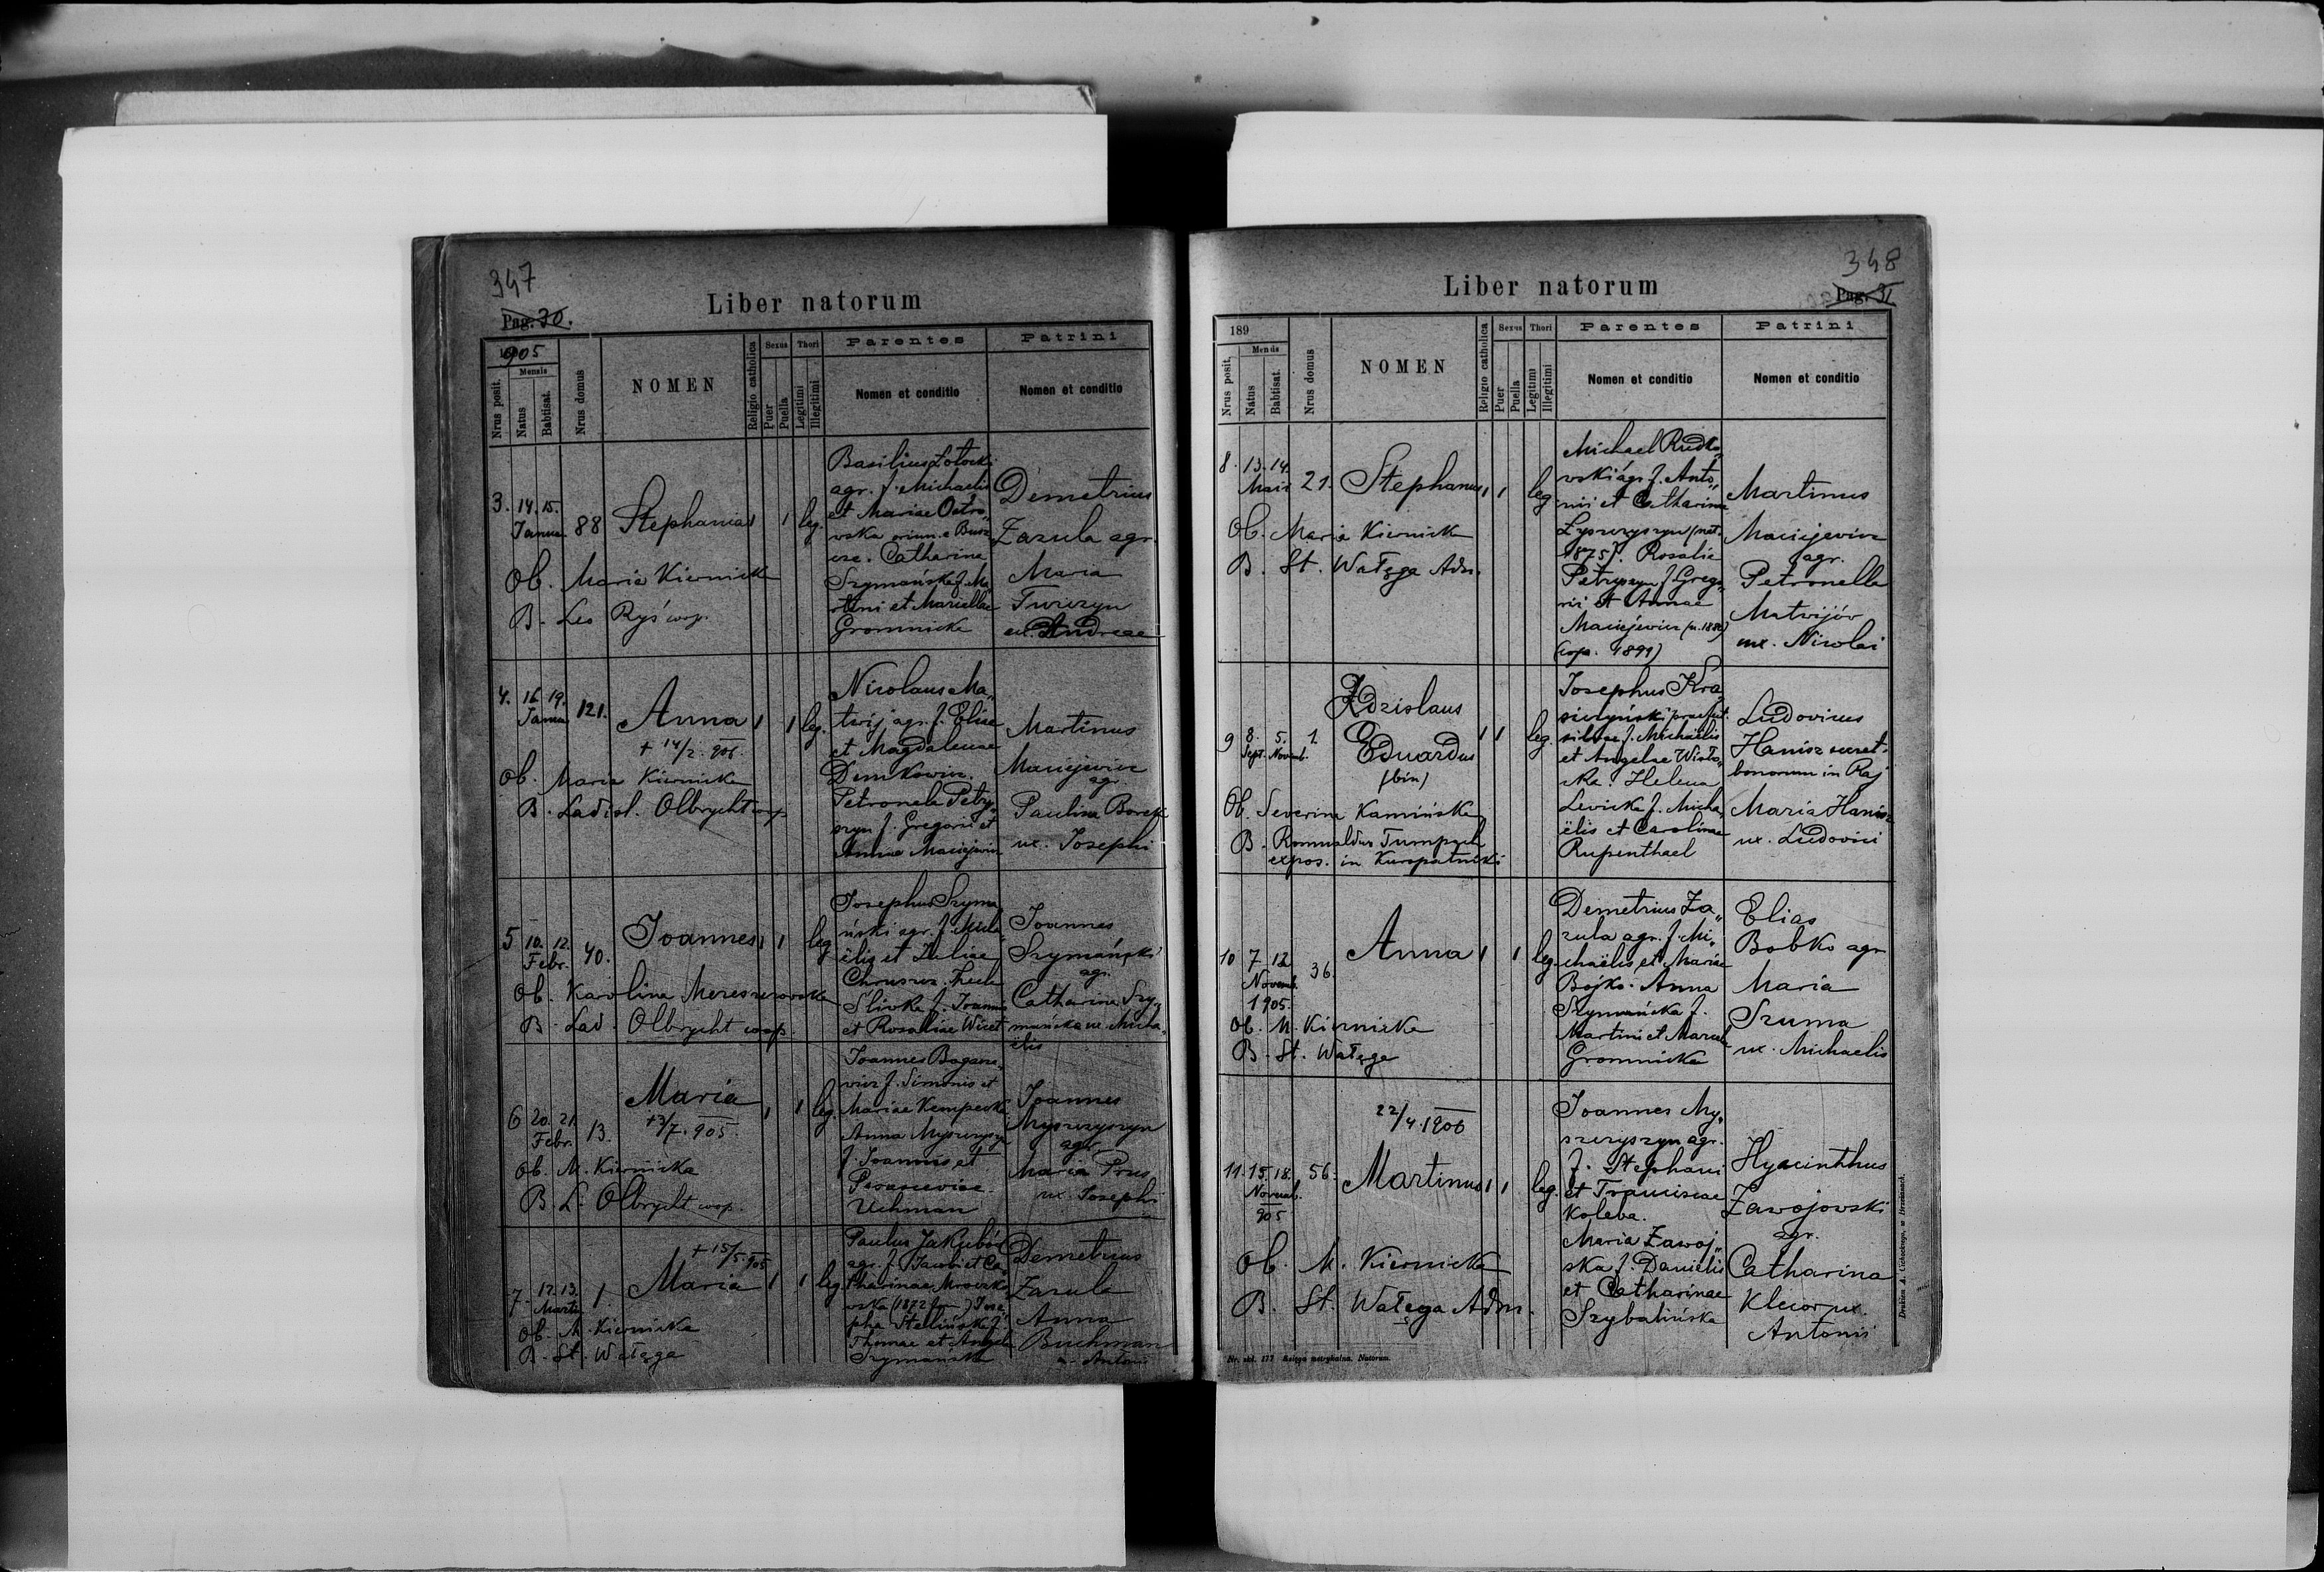 347
Pag. 30.
Liber natorum
905
Nrus posit.
Mensis
Natus
Babtisat.
Nrus domus
NOMEN
Religio catholica
Sexus
Puer
Puella
Thori
Legitimi
Illegitimi
Parentes
Nomen et conditio
Patrini
Nomen et conditio
3. 14. 15.
Janua. 88 Stephania 1 1 leg.
Ob. Maria Kiernicka
B. Leo Ryś coop.
Basilius Łotocki
agr. f. Michaelis
et Mariae Ostro„
vska
Catharina
Szymańska f. Ma
rtini et Marcellae
Gromnicka
Demetrius
Zazula agr.
Maria
Twerzyn
ux. Andreae
4. 16. 19.
Janua 121. Anna 1 1 leg.
+ 14/2. 906.
Ob. Maria Kiernicka
B. Ladisl. Olbrycht coop
Nicolaus Ma„
twij agr. f. Eliae
et Magdalenae
Demkowicz.
Petronela Petry„
szyn f. Gregorii et
Annae Maciejewicz
Martinus
Maciejewicz
agr
Paulina Borek
ux. Josephi
5 10. 12.
Febr. 40. Joannes 1 1 leg
Ob. Karolina Mereszczowska
B. Lad. Olbrycht coop.
Josephus Szyma
ński agr. f. Micha„
ëlis et Juliae
Chruszcz. Thecla
Slivka f. Joannis
et Rosaliae Wicet
Joannes
Szymański
agr.
Catharina Szy„
mańska ux. Micha„
ëlis
6 20. 21.
Febr. 13. Maria 1 1 leg
+3/7. 905
Ob. M. Kiernicka
B. L. Olbrycht coop.
Joannes Bogano„
vicz f. Simonis et
Mariae Kempecka
Anna Myszczyszyn
f. Joannis et
Uchman
Joannes
Myszczyszyn
agr
Maria Prus
ux. Josephi
7. 12. 13.
Martii 1. Maria 1 1 leg
+ 15/5. 905
Ob. M. Kiernicka
B. St. Wałęga
Paulus Jakubów
agr. f. Jacobi et Ca„
tharinae Mroczko
vska (1872
pha Stelińska f.
Thomae et Angela
Szymańska
Demetrius
Zazula
Anna
Buchman
ux. Antoni
348
Pag. 31
Liber natorum
189
Nrus posit.
Mensis
Natus
Babtisat.
Nrus domus
NOMEN
Religio catholica
Sexus
Puer
Puella
Thori
Legitimi
Illegitimi
Parentes
Nomen et conditio
Patrini
Nomen et conditio
8. 13. 14.
Maii 21. Stephanus 1 1 leg.
Ob. Maria Kiernicka
B. St. Wałęga Adm.
Michael Rudko„
vski agr. f. Anto„
nii et Catharinae
Łyszczyszyn (nat.
1875). Rosalia
Petryszyn f. Grego„
rii et Annae
Maciejewicz (n. 1880)
(cop. 1899)
Martinus
Maciejewicz
agr.
Petronella
Matvijów
ux. Nicolai
9 8. 5. 1.
Sept. Novemb.
Zdzislaus
Eduardus 1 1 leg.
(bin)
Ob. Severina Kamińska
B. Romualdus Tumpach
expos. in Kuropatniki
Josephus Kra„
siczyński praefect.
silvae f. Michaëlis
et Angelae Wisło„
cka. Helena
Levicka f. Micha„
ëlis et Carolinae
Rupenthael
Ludovicus
Hanisz secret.
bonorum in Raj
Maria Hanisz
ux. Ludovici
10 7 12
Novemb. 36. Anna 1 1 leg.
1905.
Ob. M. Kiernicka
B. St. Wałęga
Demetrius Za„
zula agr. f. Mi„
chaëlis et Mariae
Bojko. Anna
Szymańska f.
Martini et Marcelae
Gromnicka
Elias
Bobko agr
Maria
Szuma
ux. Michaelis
22/4. 1906
11. 15. 18. 56. Martinus 1 1 leg.
Novemb.
905
Ob. M. Kiernicka
B. St. Wałęga Adm.
Joannes My„
szczyszyn agr.
f. Stephani
et Franciscae
Koleba.
Maria Zawoj„
ska f. Danielis
et Catharinae
Szybalińska
Hyacinthus
Zawojowski
agr.
Catharina
Klecor ux.
Antonii
Nr. skł. 177 Księga metrykalna. Natorum.
Drukiem A. Cichockiego, w Brzeżanach.